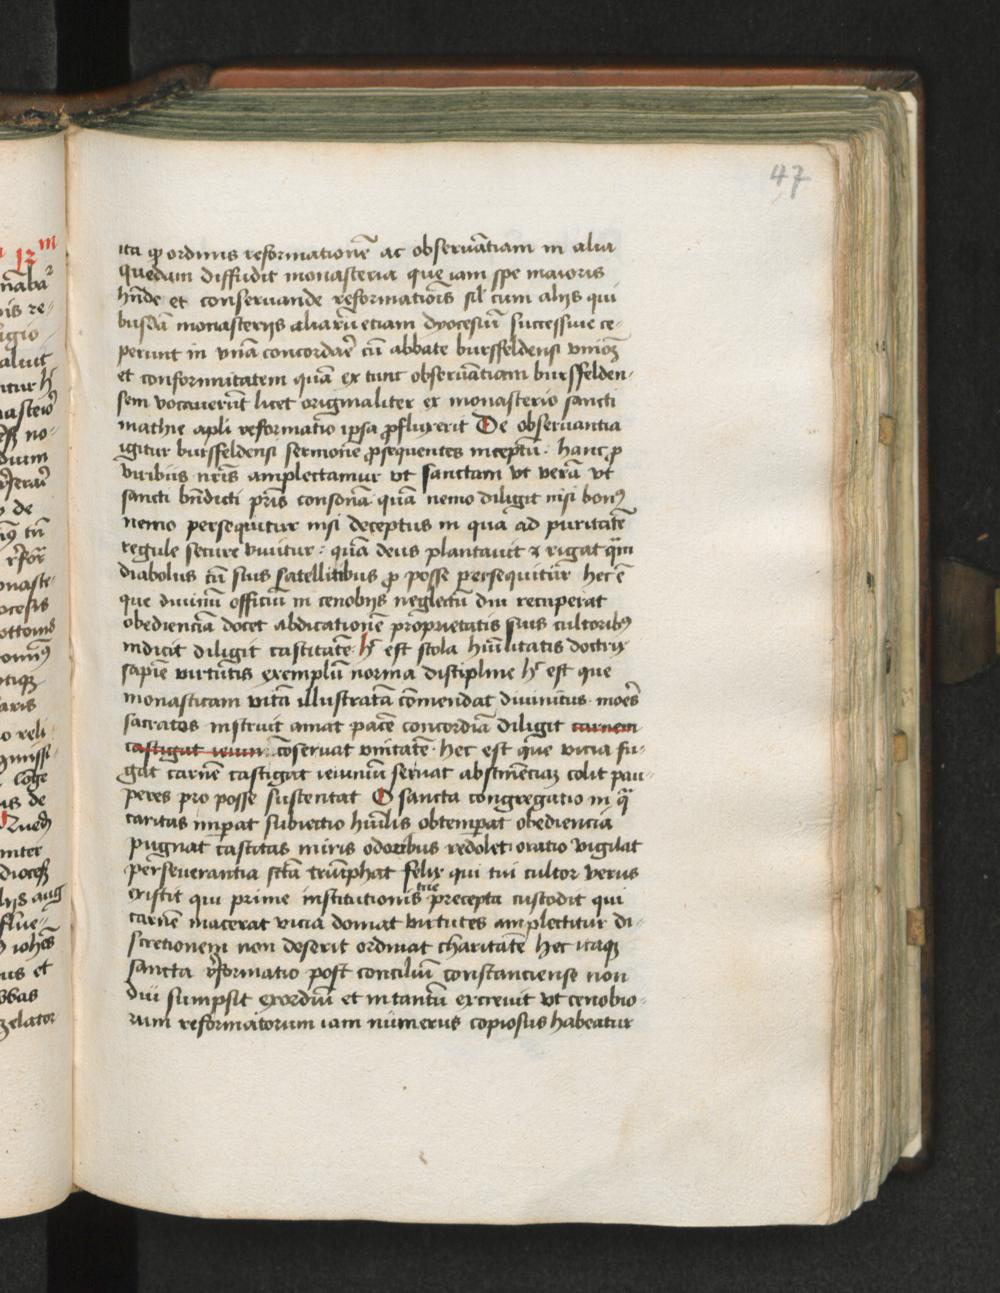 47
ita qꝫ ordinis reformationē ac obseruātiam in alia
quedam diffudit monasteria que iam spe maioris
hn̄de et conseruande reformatiōis sil̄ cum alijs qui
busdā monasterijs aliarū etiam dyocesiū successiue ce-
perunt in vnā concordare cū abbate bursfeldensi vnioēꝫ
et conformitatem quā ex tunc obseruātiam bursfelden-
sem vocauerūt licet originaliter ex monasterio sancti
mathie apli reformatio ipsa ꝓfluxerit De obseruantia
igitur bursfeldensi sermone ꝓsequentes inceptū. hanc ꝓ
viribus nr̄is amplectamur vt sanctam vt verā vt
sancti bn̄dicti pr̄is consonā. quā nemo diligit nisi bonꝰ
nemo persequitur nisi deceptus in qua ad puritatē
regule secure viuitur: quā deus plantauit ⁊ rigat quā
diabolus cū suis satellitibus ꝓ posse persequitur hec ē
que diuinū officiū in cenobijs neglectū diu recuperat
obedienciā docet abdicationē proprietatis suis cultoribꝰ
indicit diligit castitatē. hͨ est scola hūilitatis doctrix
sapiē virtutis exemplū norma discipline hͨ est que
monasticam vitā illustratā cōmendat diuinitus. moēs
sacratos instruit amat pacē concordiā diligit carnem
castigat ieium cōseruat vnitatē. hec est que vicia fu-
gat carnē castigat ieiuniū seruat abstinēciaꝫ colit pau-
peres pro posse sustentat O sancta congregatio in q̄
caritas imꝑat subiectio hūilis obtemꝑat obediencia
pugnat castitas miris odoribus redolet oratio vigilat
perseuerantia sctā triūphat felix qui tui cultor verus
existit qui prime institutionis tue precepta custodit qui
carnē macerat vicia domat virtutes amplectitur di-
scretionem non deserit ordinat charitatē Hec itaqꝫ
sancta rēformatio post conciliū constanciense non
diu sumpsit exordiū et in tantū excreuit vt cenobio-
rum reformatorum iam numerus copiosus habeatur